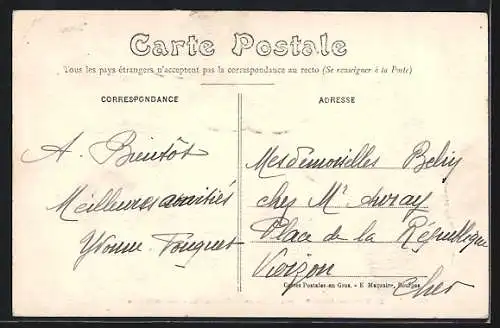 Carte Postale
Tous les pays étrangers n'acceptent pas la correspondance au recto (Se renseigner à la Poste)
CORRESPONDANCE
ADRESSE
A. Bientôt
Meilleures amitiés
Yvonne Fouquet
Mesdemoiselles
chez Mr
Place de la République
Vierzon
Cher
Cartes Postales en Gros. - E. Maquaire, Bourges